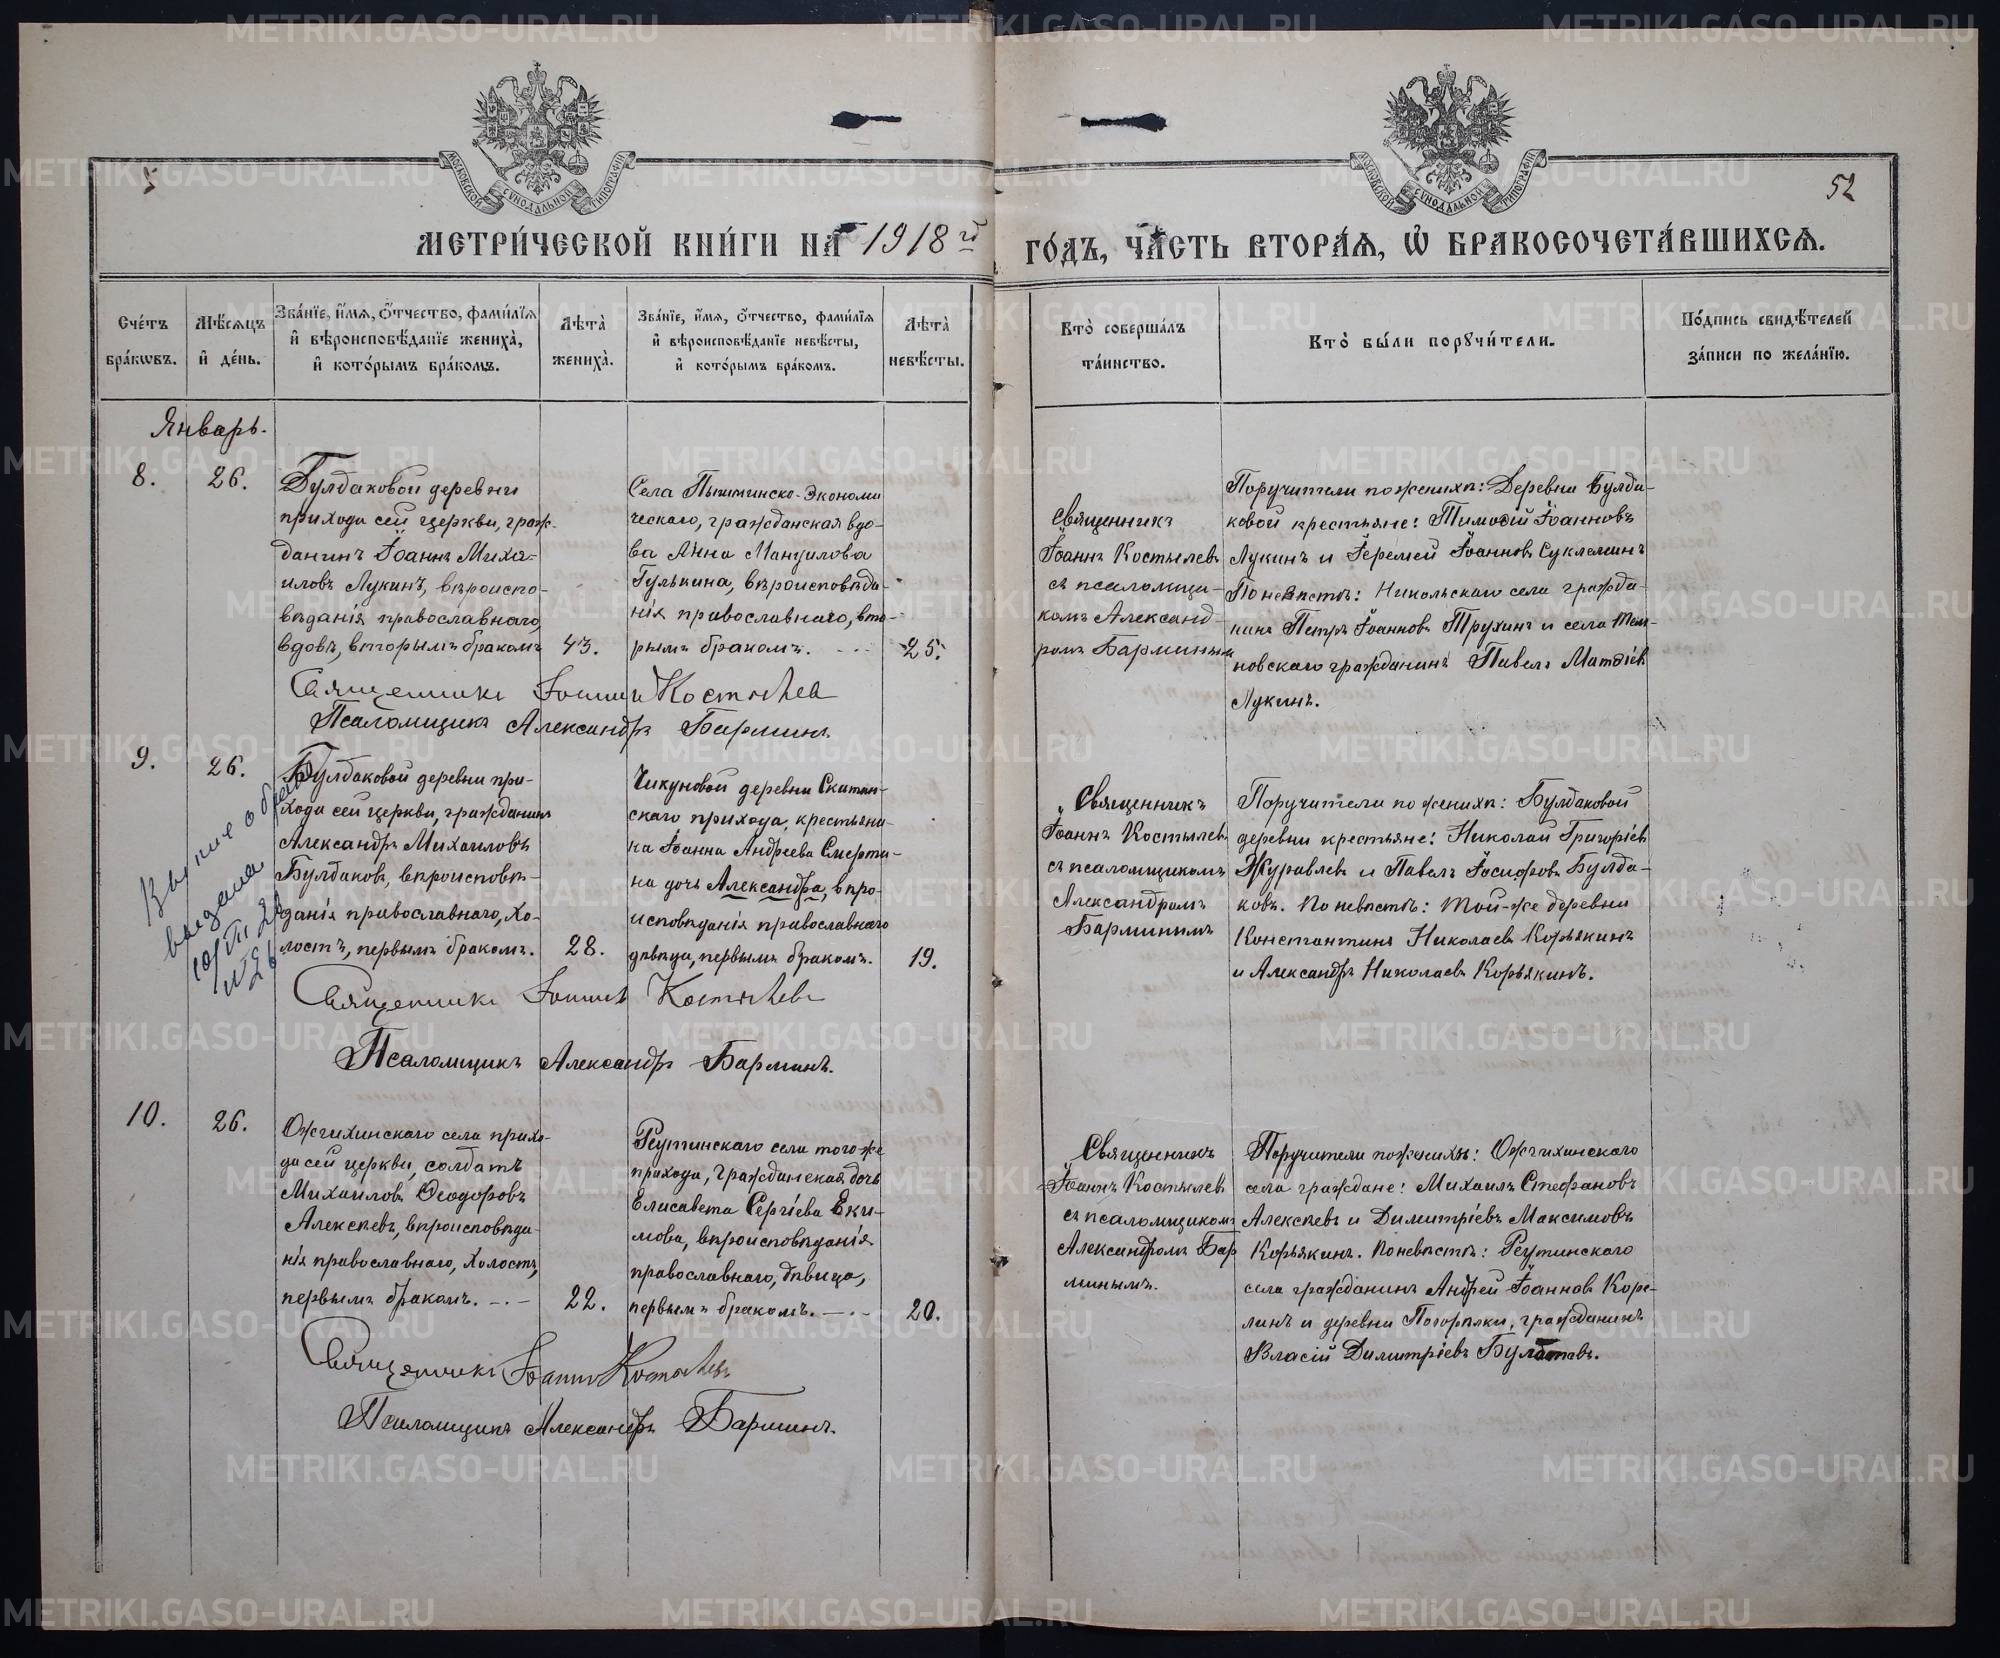 МОСКОВСКОЙ СѴНОДАЛЬНОЙ ТИПОГРАФІИ
МОСКОВСКОЙ СѴНОДАЛЬНОЙ ТИПОГРАФІИ
5
52
МЕТРИ́ЧЕСКОЙ КНИ́ГИ НА 1918 гд ГО́ДЪ, ЧА́СТЬ ВТОРА́Я, Ѡ БРАКОСОЧЕТА́ВШИХСЯ.
Сче́тъ бра́кѡвъ.
Мѣ́сяцъ и де́нь.
Зва́нїе, и́мя, ѻ́тчество, фами́лїя и вѣроисповѣ́данїе жениха̀, и кото́рымъ бра́комъ.
Лѣ́та жениха̀.
Зва́нїе, и́мя, ѻ́тчество, фами́лїя и вѣроисповѣ́данїе невѣ́сты, и кото́рымъ бра́комъ.
Лѣ́та невѣ́сты.
Кто̀ соверша́лъ та́инство.
Кто̀ бы́ли порꙋчи́тели.
По́дпись свидѣ́телей за́писи по жела́нїю.
Январь.
8.
26.
Булдаковой деревни
прихода сей церкви, граж-
данинъ Іоаннъ Миха-
иловъ Лукинъ, вѣроиспо-
вѣданія православнаго,
вдовъ, вторымъ бракомъ
43.
Села Пышминско-Экономи
ческаго, гражданская вдо-
ва Анна Мануилова
Гулькина, вѣроисповѣда-
нія православнаго, вто-
рымъ бракомъ.
25.
Священникъ
Іоаннъ Костылевъ
съ псаломщи-
комъ Александ-
ромъ Барминым
Поручители по женихѣ: Деревни Булда-
ковой крестьяне: Тимоѳій Іоанновъ
Лукинъ и Іеремей Іоанновъ Суклеминъ
По невѣстѣ: Никольскаго села гражда-
нинъ Петръ Іоанновъ Трухинъ и села Тем-
новскаго гражданинъ Павелъ Матѳіев
Лукинъ.
Священникъ Іоаннъ Костылев
Псаломщикъ Александръ Барминъ
9.
26.
Булдаковой деревни при-
хода сей церкви, гражданинъ
Александръ Михаиловъ
Булдаковъ, вѣроисповѣ-
данія православнаго, хо-
лостъ, первымъ бракомъ.
28.
Чикуновой деревни Скатин-
скаго прихода, крестьяни-
на Іоанна Андреева Смерти-
на дочь Александра, вѣро-
исповѣданія православнаго
дѣвица, первымъ бракомъ.
19.
Священникъ
Іоаннъ Костылевъ
съ псаломщикомъ
Александромъ
Барминымъ
Поручители по женихѣ: Булдаковой
деревни крестьяне: Николай Григоріевъ
Журавлевъ и Павелъ Іосифовъ Булда-
ковъ. По невѣстѣ: той-же деревни
Константинъ Николаевъ Корьякинъ
и Александръ Николаевъ Корьякинъ.
о браке
выдана
10/VII 28
№26
Священникъ Іоаннъ Костылевъ
Псаломщикъ Александръ Барминъ.
10.
26.
Ожгихинскаго села прихо-
да сей церкви, солдатъ
Михаиловъ Ѳеодоровъ
Алексѣевъ, вѣроисповѣда-
нія православнаго, холостъ,
первымъ бракомъ.
22.
Реутинскаго села того же
прихода, гражданская дочь
Елисавета Сергіева Еки-
мова, вѣроисповѣданія
православнаго, дѣвица,
первымъ бракомъ.
20.
Священникъ
Іоаннъ Костылевъ
съ псаломщикомъ
Александромъ Бар
минымъ.
Поручители по женихѣ: Ожгихинскаго
села граждане: Михаилъ Стефановъ
Алексѣевъ и Димитріевъ Максимовъ
Корьякинъ. По невѣстѣ: Реутинскаго
села гражданинъ Андрей Іоанновъ Коре-
линъ и деревни Погорѣлки, гражданинъ
Власій Димитріевъ Булатовъ.
Священникъ Іоаннъ Костылевъ
Псаломщикъ Александръ Барминъ.
METRIKI.GASO-URAL.RU